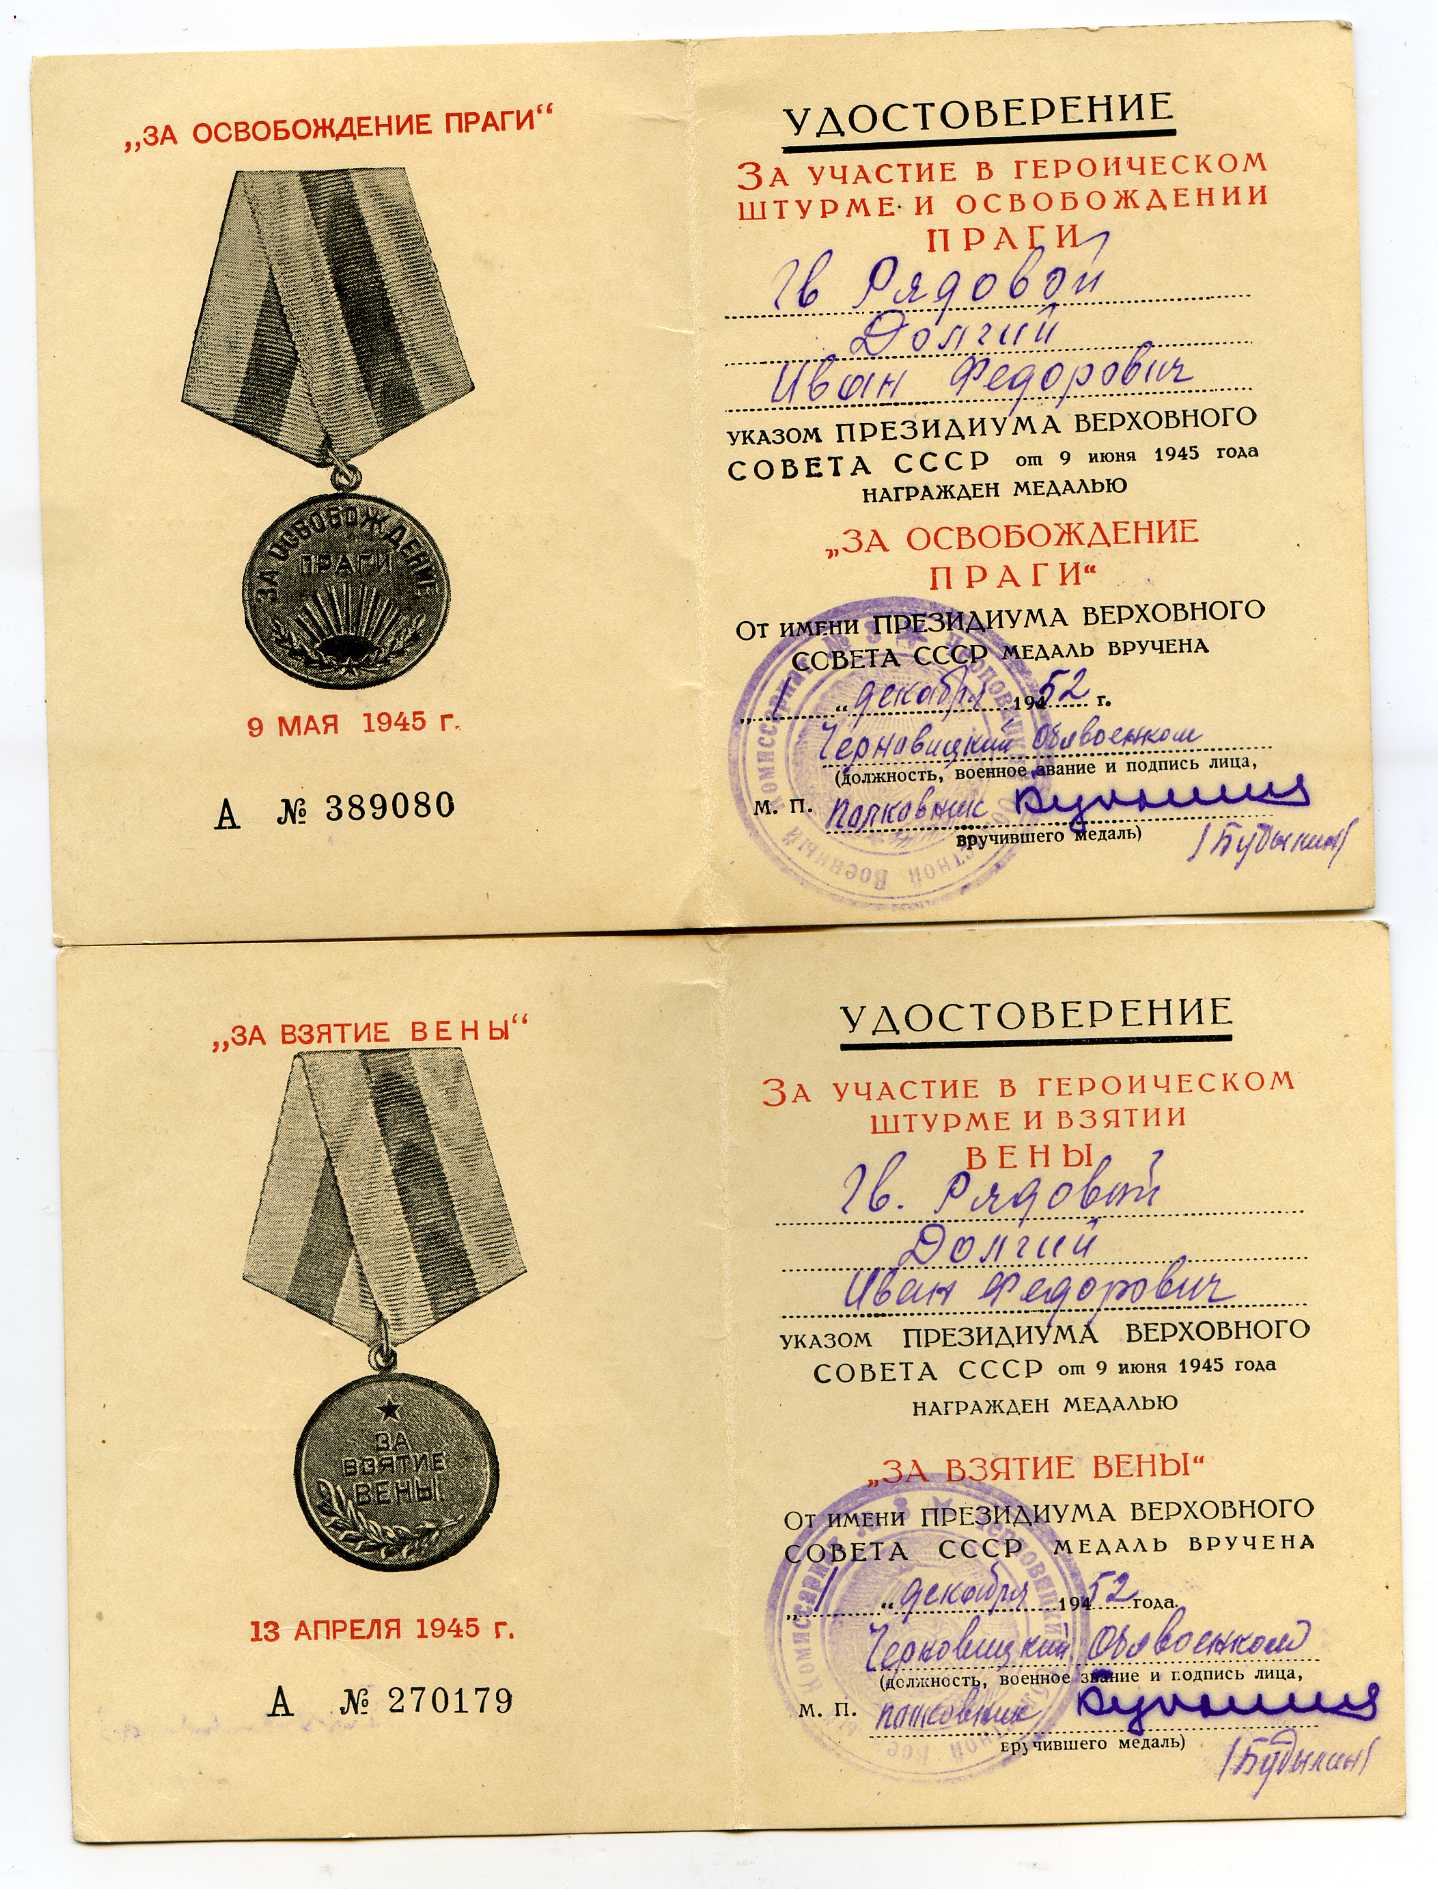 „ЗА ОСВОБОЖДЕНИЕ ПРАГИ“
ЗА ОСВОБОЖДЕНИЕ
ПРАГИ
9 МАЯ 1945 г.
А № 389080
УДОСТОВЕРЕНИЕ
ЗА УЧАСТИЕ В ГЕРОИЧЕСКОМ
ШТУРМЕ И ОСВОБОЖДЕНИИ
ПРАГИ
Гв Рядовой
Долгий
Иван Федорович
УКАЗОМ ПРЕЗИДИУМА ВЕРХОВНОГО
СОВЕТА СССР от 9 июня 1945 года
НАГРАЖДЕН МЕДАЛЬЮ
„ЗА ОСВОБОЖДЕНИЕ
ПРАГИ“
ОТ ИМЕНИ ПРЕЗИДИУМА ВЕРХОВНОГО
СОВЕТА СССР МЕДАЛЬ ВРУЧЕНА
„1“ декабря 19452 г.
Черновицкий Облвоенком
(должность, военное звание и подпись лица,
М. П. полковник
вручившего медаль)
(Будыкин)
„ЗА ВЗЯТИЕ ВЕНЫ“
ЗА
ВЗЯТИЕ
ВЕНЫ
13 АПРЕЛЯ 1945 г.
А № 270179
УДОСТОВЕРЕНИЕ
ЗА УЧАСТИЕ В ГЕРОИЧЕСКОМ
ШТУРМЕ И ВЗЯТИИ
ВЕНЫ
Гв. Рядовой
Долгий
Иван Федорович
УКАЗОМ ПРЕЗИДИУМА ВЕРХОВНОГО
СОВЕТА СССР от 9 июня 1945 года
НАГРАЖДЕН МЕДАЛЬЮ
„ЗА ВЗЯТИЕ ВЕНЫ“
ОТ ИМЕНИ ПРЕЗИДИУМА ВЕРХОВНОГО
СОВЕТА СССР МЕДАЛЬ ВРУЧЕНА
„1“ декабря 19452 года
Черновицкий Облвоенком
(должность, военное звание и подпись лица,
М. П. полковник
вручившего медаль)
(Будыкин)